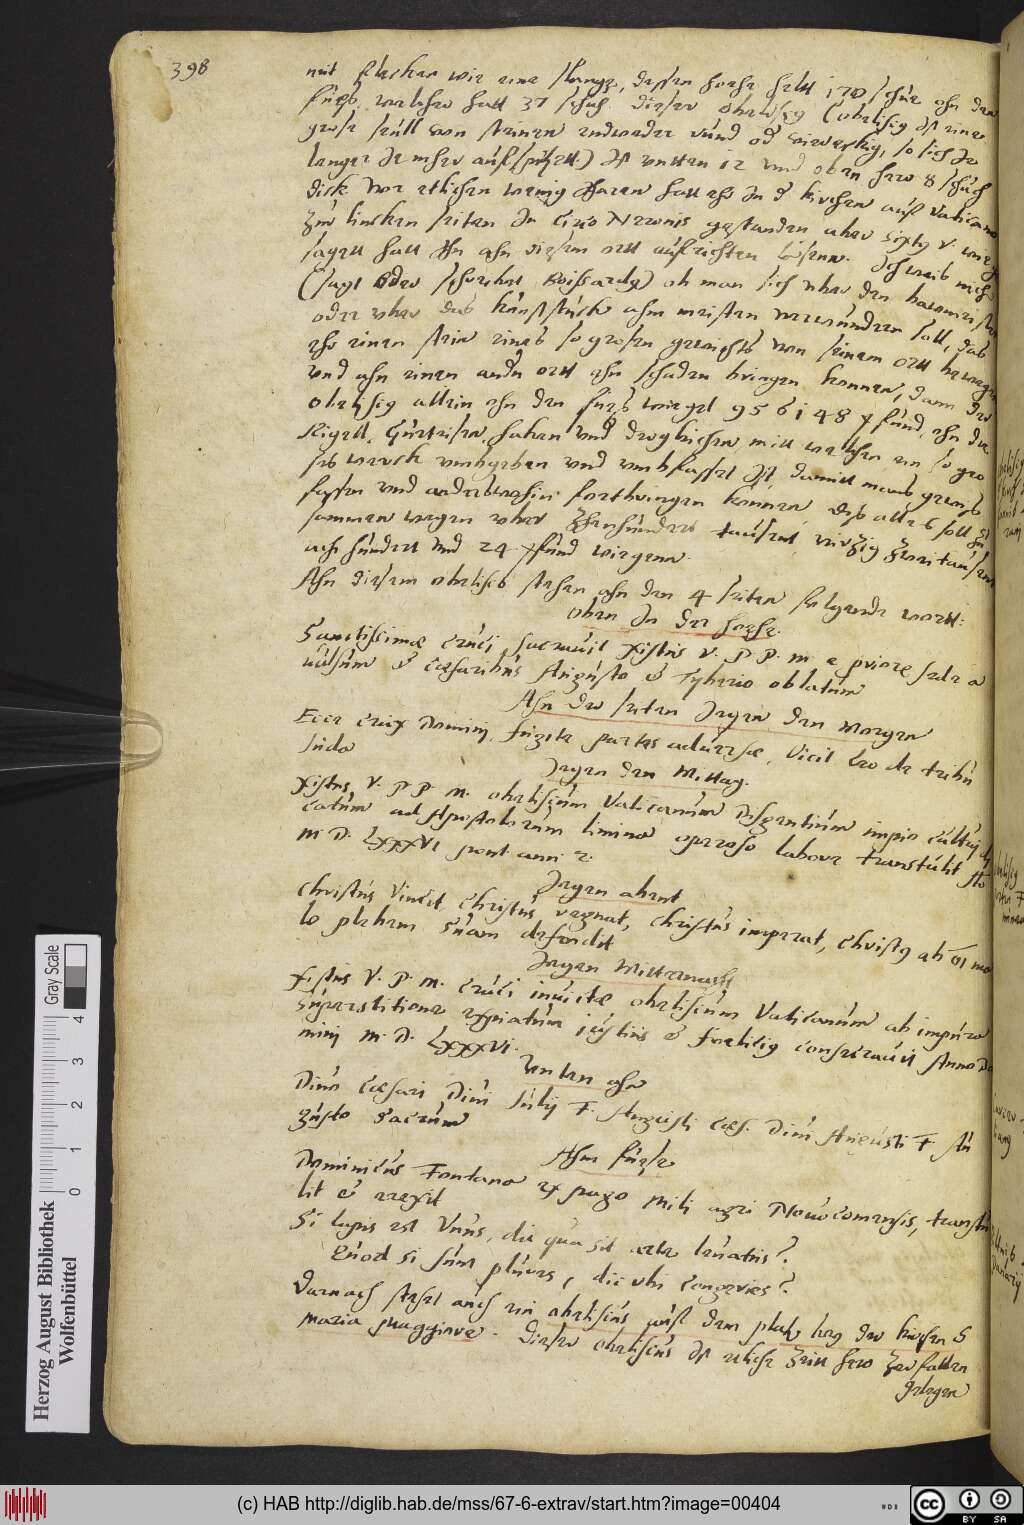 398
mit flachen wie eine stange, dessen hoehe helt 170 schue ohn den
fuess, welcher hatt 37 schuh. dieser obeliscq (obeliscq ist eine
grose seull von steinen entweder rund od viereckig, so sich Je
lenger Je mher auffspitzett.) ist unten 12 und oben hero 8 schuch
dick vor etlichen wenig Jharen hatt ehs In d kirchen auff Vaticano
zur lincken seiten In Circo Neronis gestanden aber Sixtq V. wie
sagett hatt Ihn ahn diesem ortt auffrichten lassen. Ich weis nicht
(sagt Oder schreibet Boissardq) ob man sich uber den baumeister
oder uber das kunststuck ahm meisten verwundern soll, das
ehr einen stein eines so grosen gewichts von seinem ortt bewegen
und ahn einen andn ortt ohn schaden bringen konnen, dann der
Obeliscq allein ohn den fuess wieget 956148 pfund, ohn die
Rigell, Gurteisen, haken und dergleichen, mitt welchen ein so gro
ses werck umbgeben und umbfasset ist, damitt mans gewis
fassen und anderswohin fortbringen konnen dis alles soll zu
sammen wegen uber zehenhundert tausent, viertzig zweitausent
acht hundert und 24 pfund wiegenn.
Ahn diesem obelisco stehen ahn den 4 seiten folgende wortt:
Oben In der hoehe.
Sanctissimae Cruci sacravit Xistus V. P. P. M. e priore sede a
vulsum & Caesaribus Augusto & Tyberio oblatum
Ahn der seiten Jegen den Morgen
Ecce Crux Domini, fugite partes adversae, Vicit leo de tribu
Juda
Jegen den Mittag.
Xistus V. P P. M. obeliscum Vaticanum Dis gentium impio cultu di
catum ad Apostolorum limina operoso labore transtulit Ao
M D. LXXXVI pont anni 2.
Jegen abent
Christus Vincit, Christus regnat, Christus imperat, Christq ab oi ma
lo plebem Suam defendit
Jegen Mitternacht
Xistus V. P. M. Cruci invictae obeliscum Vaticanum ab impura
Superstitione expiatum iustius & foeliciq consecravit Anno Do
mini M. D. LXXXVI.
Unten ahn
Divo Caesari Divi Julij F. Augusti Caes. Divi Augusti F. Au
gusto Sacrum
Ahm fuesse
Dominicus Fontana ex pago Mili agri Novocomensis, transtu
lit & erexit
Si lapis est Unus, dic qua sit arte levatus?
Quod si sunt plures, dic ubi Congeries?
Darnach stehet auch ein obeliscus auff dem platz beq der kirchen S
Maria Maggiore. Dieser obeliscus ist etliche zeitt hero zerfallen
gelegen
Herzog August Bibliothek
Wolfenbüttel
0 1 2 3 4
Gray Scale
(c) HAB http://diglib.hab.de/mss/67-6-extrav/start.htm?image=00404
cc BY SA